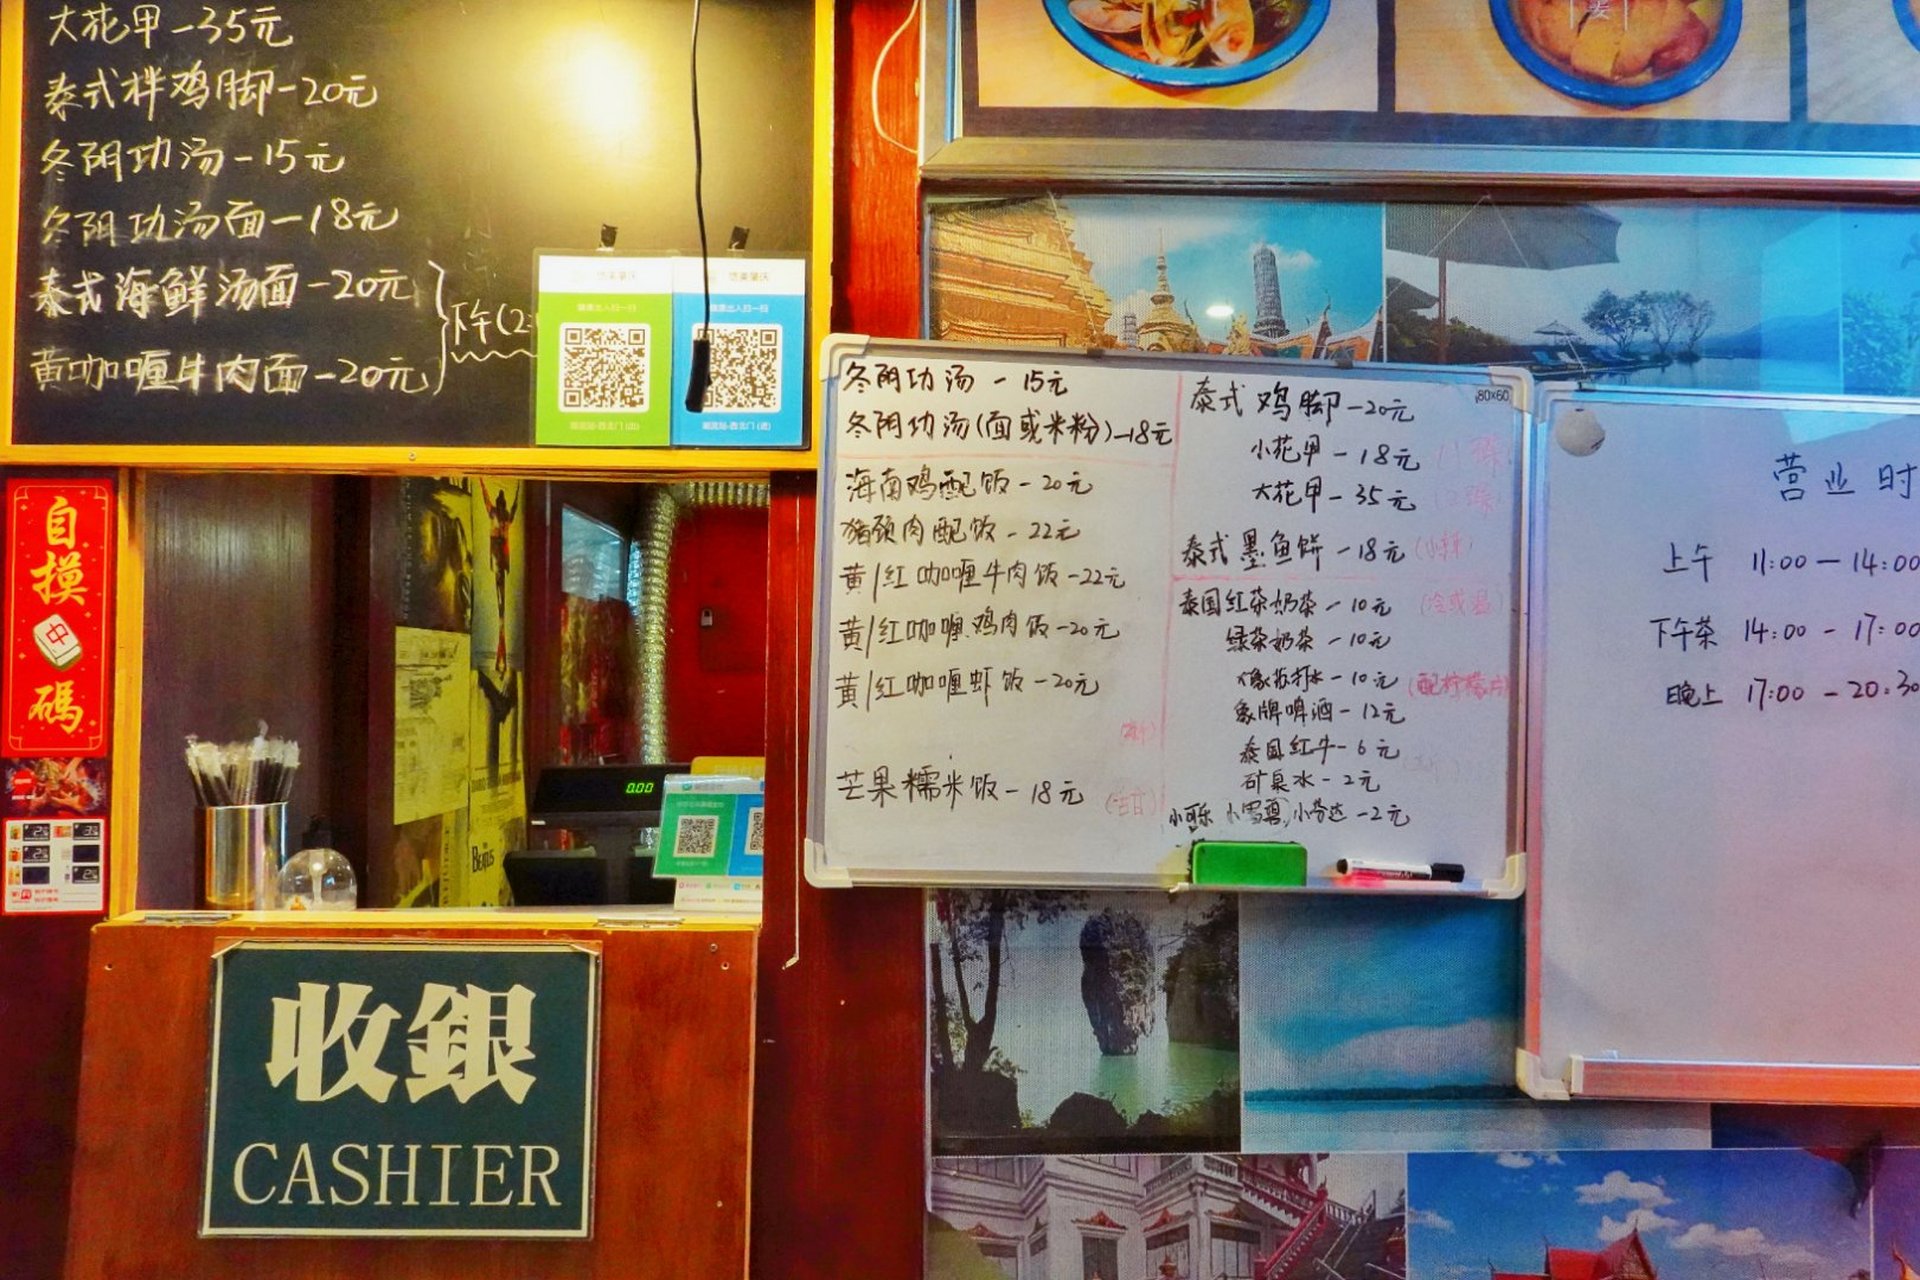 大花甲-35元
泰式拌鸡脚-20元
冬阴功汤-15元
冬阴功汤面-18元
泰式海鲜汤面-20元
黄咖喱牛肉面-20元
下午(2:
自摸
中
碼
0.00
BEATLES
收銀
CASHIER
冬阴功汤 - 15元
冬阴功汤(面或米粉)-18元
海南鸡配饭 - 20元
猪颈肉配饭 - 22元
黄/红咖喱牛肉饭-22元
黄/红咖喱鸡肉饭-20元
黄/红咖喱虾饭-20元
芒果糯米饭 - 18元
80x60
泰式鸡脚-20元
小花甲 - 18元
大花甲 - 35元
泰式墨鱼饼 - 18元
泰国红茶奶茶 - 10元 (冷或温)
绿茶奶茶 - 10元
苏打水 - 10元 (配柠檬片)
象牌啤酒 - 12元
泰国红牛 - 6元
矿泉水 - 2元
小可乐 小雪碧, 小芬达 - 2元
营业时
上午 11:00 - 14:00
下午茶 14:00 - 17:00
晚上 17:00 - 20:30